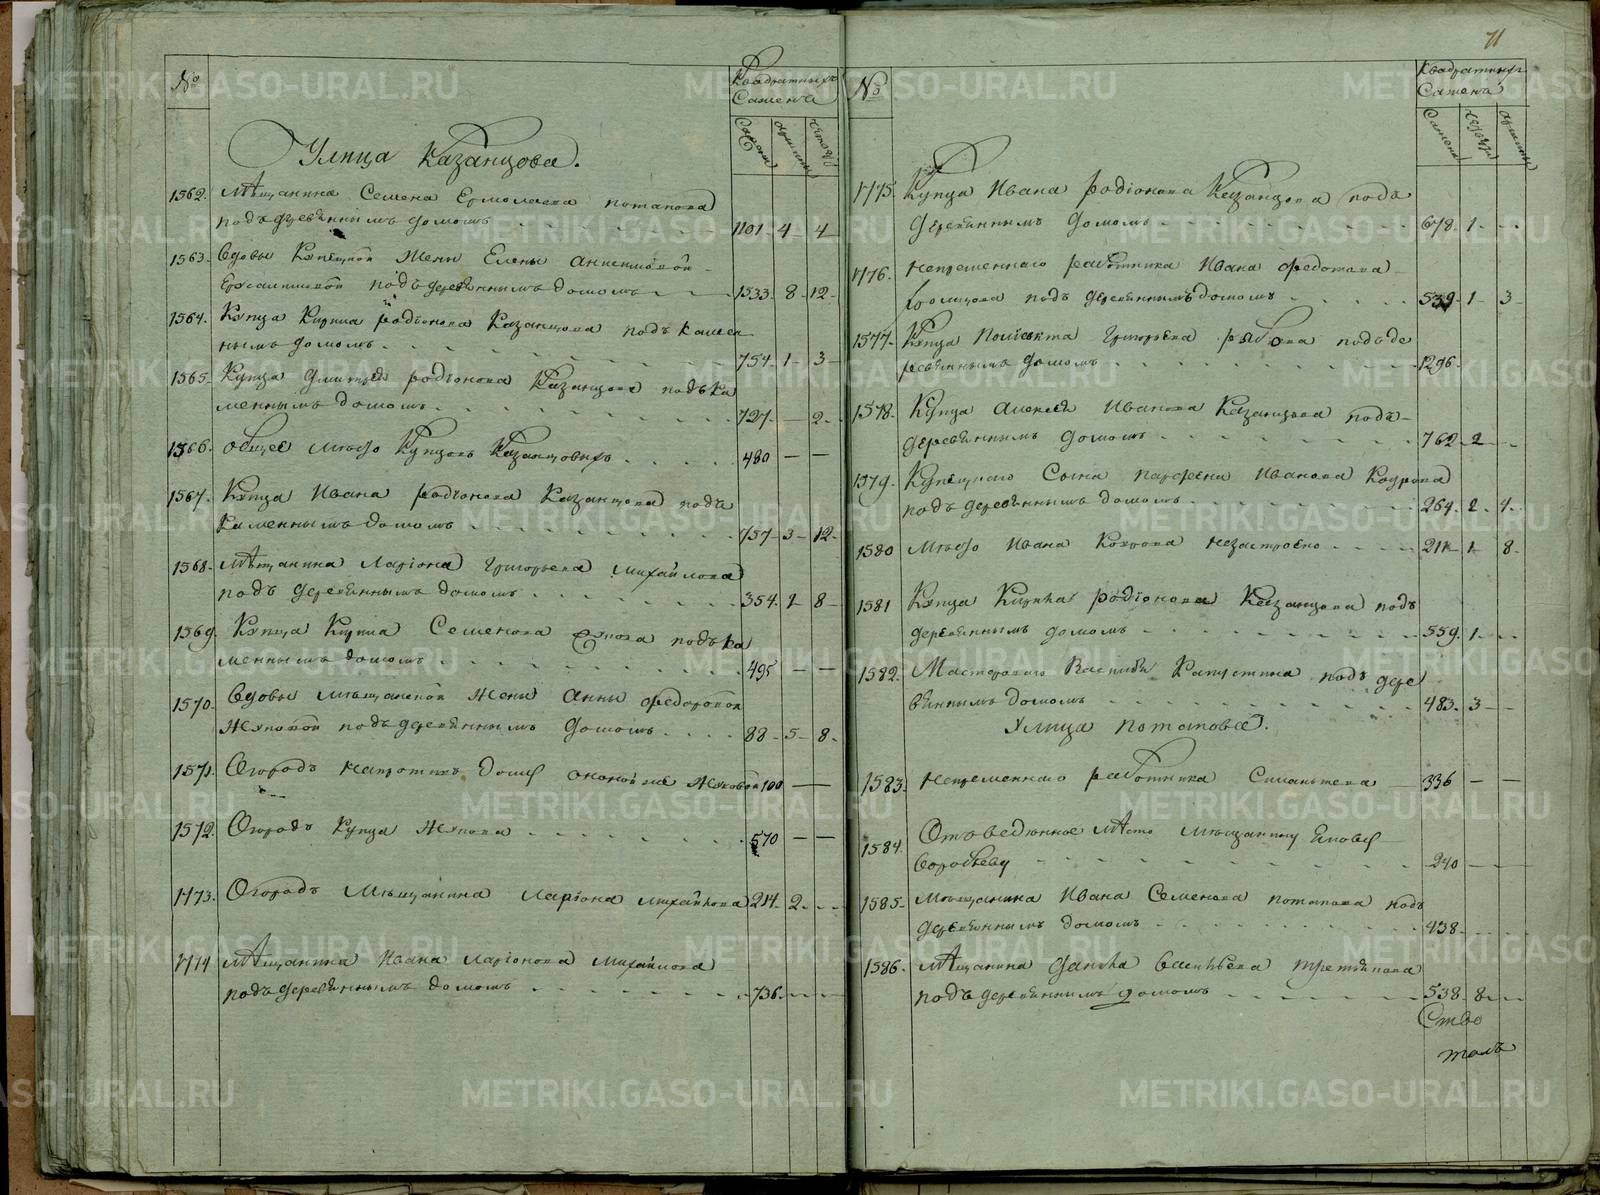 №
Квадратныхъ
Сажень
Сажени
аршины
четверти
Улица Казанцова.
1562. Мѣщанина Семена Ермолаева Потапова
подъ деревяннымъ домомъ 1101 4 4
1563. Вдовы Купецкой Жены Елены
подъ деревяннымъ домомъ 1533 8 12
1564. Купца Кирила Родіонова Казанцова подъ камен
нымъ домомъ 754 1 3
1565. Купца Дмитрея Родіонова Казанцова подъ ка
меннымъ домомъ 727 — 2
1566. Общее мѣсто Купцовъ Казанцовыхъ 480 — —
1567. Купца Ивана Родіонова Казанцова подъ
каменнымъ домомъ 757 3 12
1568. Мѣщанина Ларіона Григорьева Михайлова
подъ деревяннымъ домомъ 354 1 8
1569. Купца Кирила Семенова подъ ка
меннымъ домомъ 495 — —
1570. Вдовы мѣщанской Жены Анны Федоровой
Жуковой подъ деревяннымъ домомъ 88 5 8
1571. Огородъ напротивъ дому оной же Жуковой 100 —
1572. Огородъ Купца Жукова 570 — —
1773. Огородъ Мѣщанина Ларіона Михайлова 214 2
1774 Мѣщанина Ивана Ларіонова Михайлова
подъ деревяннымъ домомъ 736
71
№
Квадратныхъ
Сажень
Сажени
четверти
аршины
1775. Купца Ивана Родіонова Казанцова подъ
деревяннымъ домомъ 678 1
1776. Непременнаго работника Ивана Федотова
подъ деревяннымъ домомъ 539 1 3
1577. Купца Григорьева Рябова подъ де
ревяннымъ домомъ 1296
1578. Купца Алексея Иванова Казанцова подъ
деревяннымъ домомъ 762 2
1579. Купецкаго Сына Парфена Иванова
подъ деревяннымъ домомъ 264 2 4
1580 Мѣсто Ивана незастроено 211 1 8
1581 Купца Кирила Родіонова Казанцова подъ
деревяннымъ домомъ 559 1
1582. Мастероваго Василья Капустина подъ дере
вяннымъ домомъ 483 3
Улица Потаповыхъ.
1583. Непременнаго работника Силантьева 336 — —
1584. Отъведенное мѣсто мѣщанину
Воробьеву 240
1585. Мѣщанина Ивана Семенова Потапова подъ
деревяннымъ домомъ 438
1586. Мѣщанина Данила Васильева Третьякова
подъ деревяннымъ домомъ 538 8
METRIKI.GASO-URAL.RU